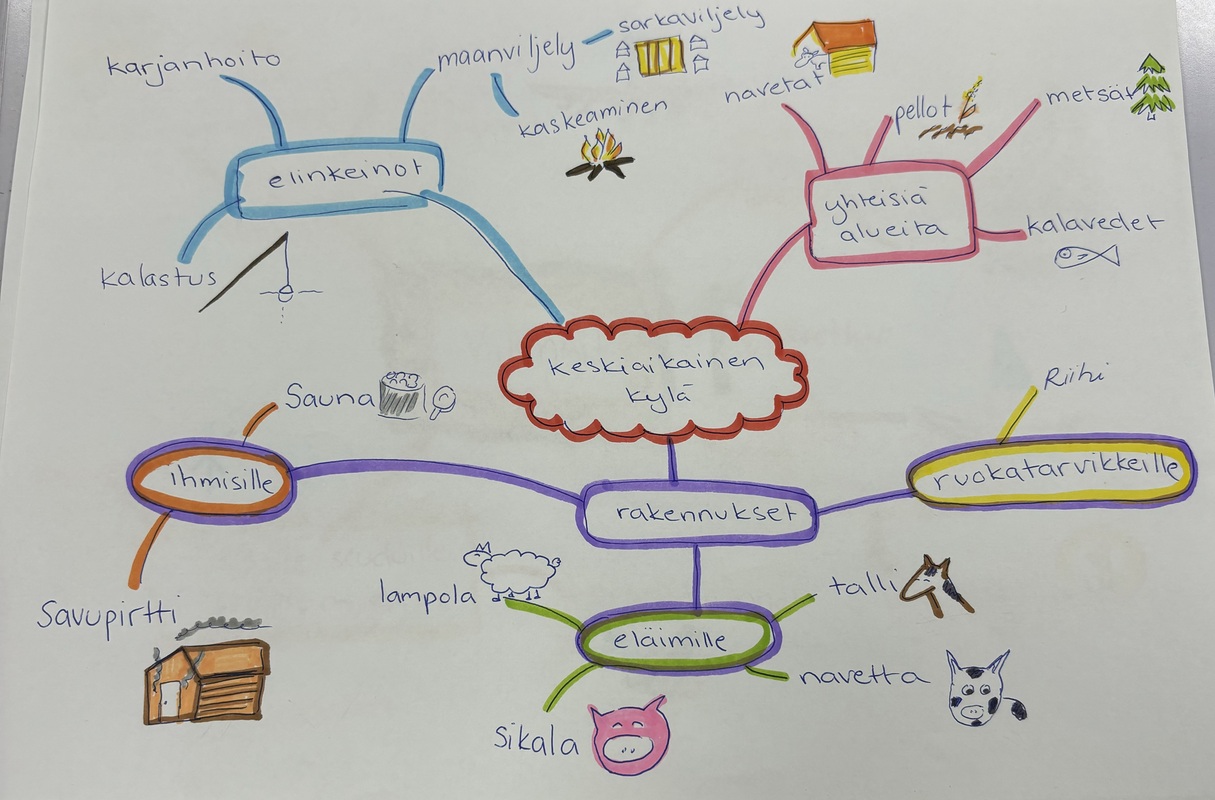 sarkaviljely
karjanhoito
maanviljely
navetat
pellot
metsät
kaskeaminen
elinkeinot
yhteisiä
alueita
kalavedet
kalastus
keskiaikainen
kylä
Sauna
Riihi
ihmisille
ruokatarvikkeille
rakennukset
lampola
talli
Savupirtti
eläimille
navetta
Sikala